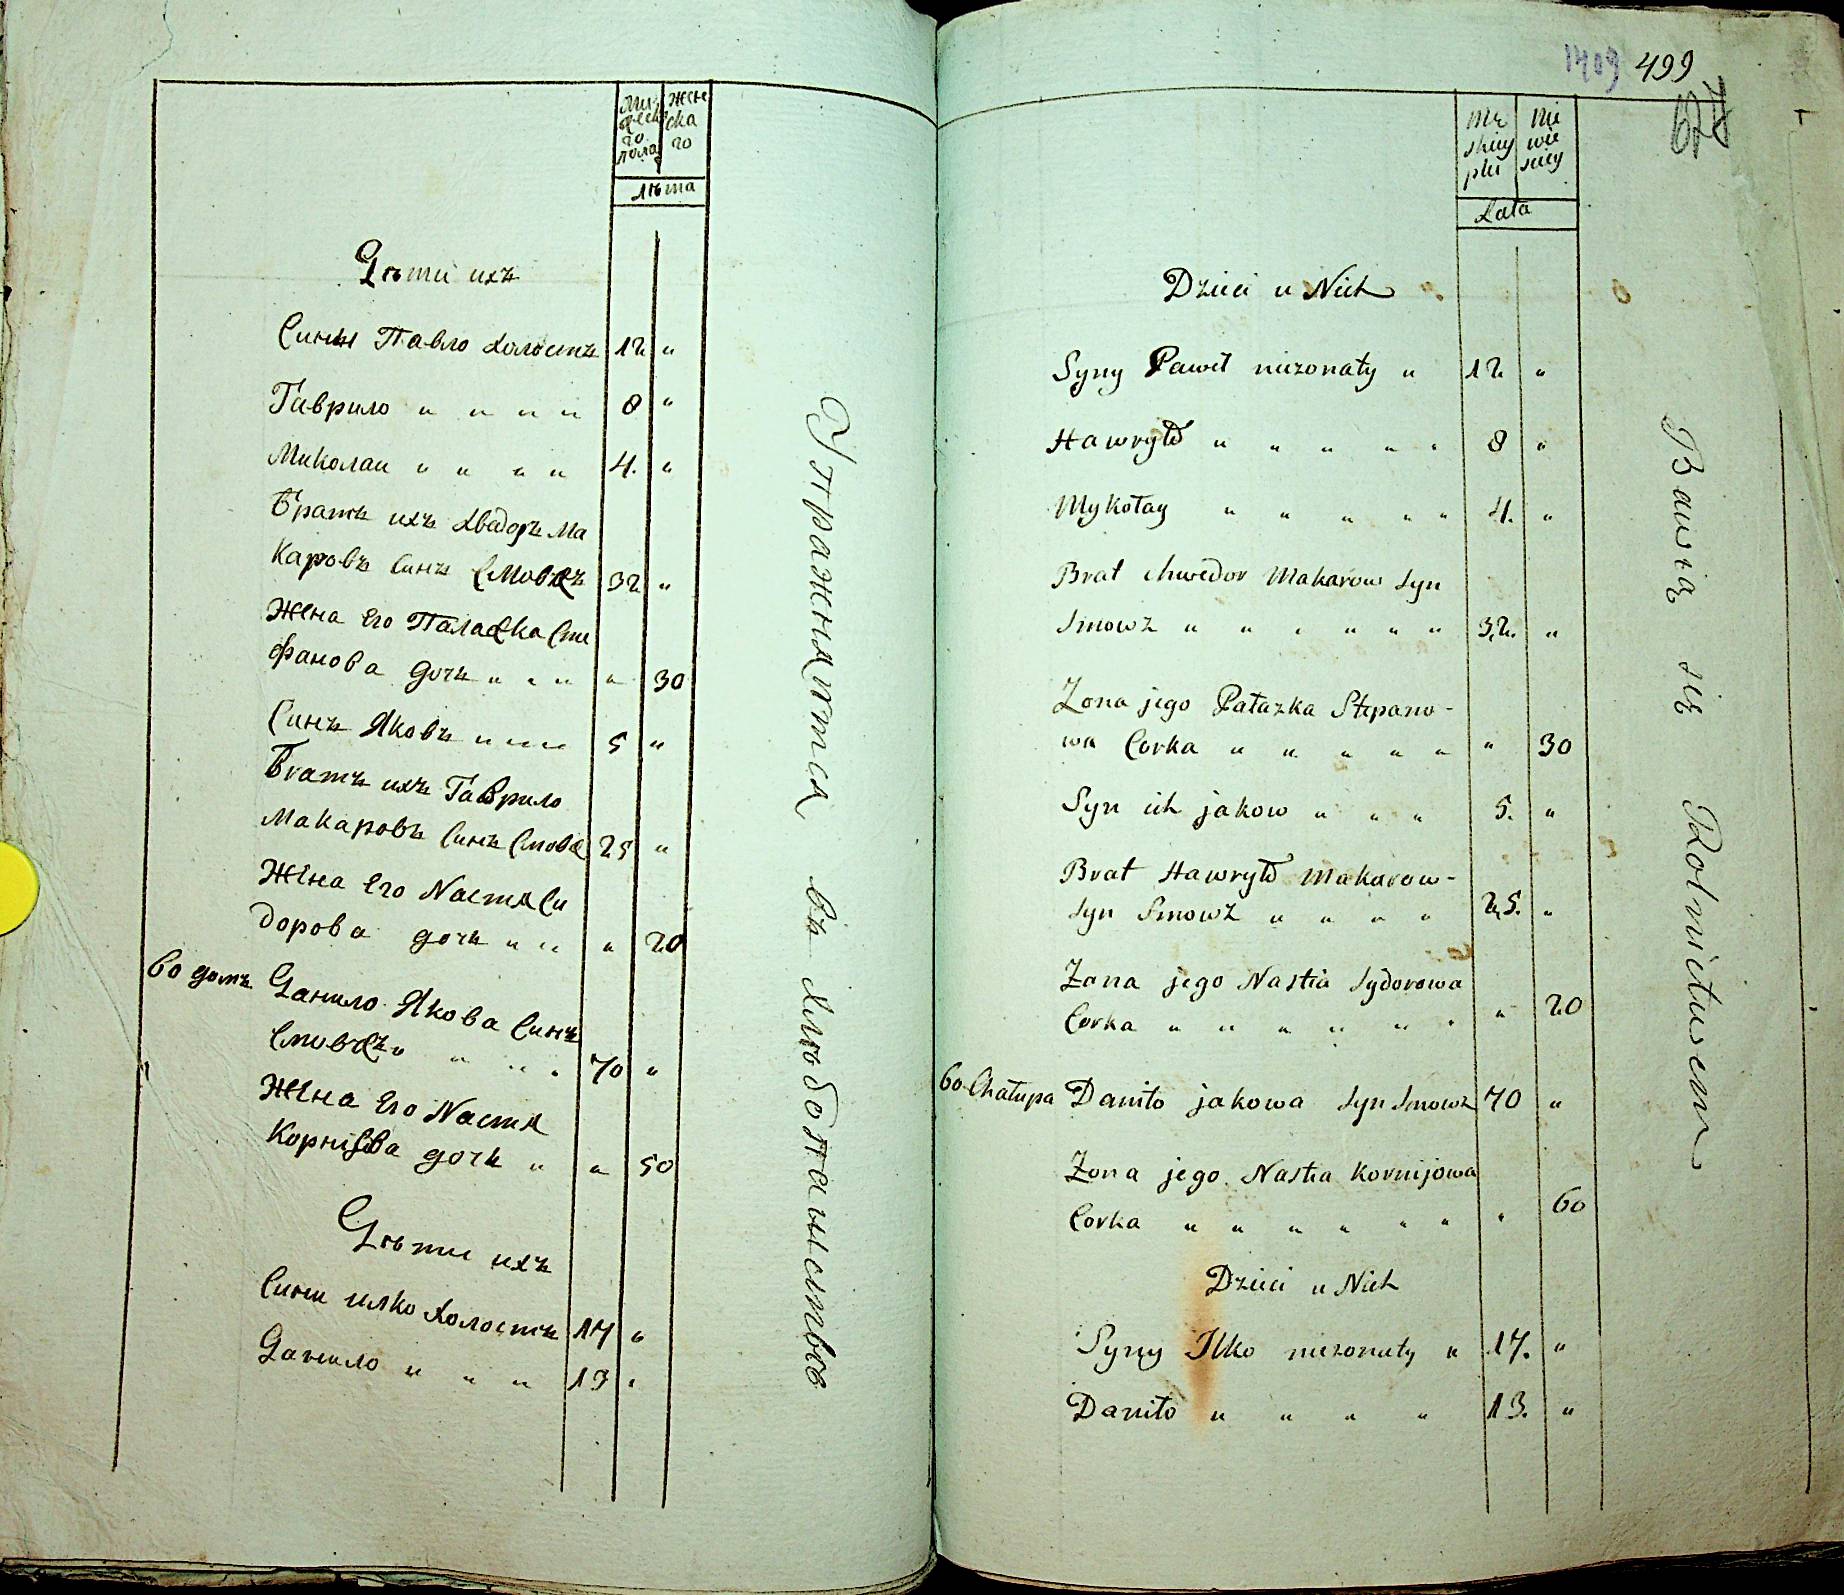 Мужескаго пола
Женскаго
лѣта
Дѣти ихъ
Сины Павло холостъ 12 "
Гаврило " " " " 8 "
Миколаи " " " " 4. "
Братъ ихъ Хвадоръ Ма
каровъ Синъ Смовжъ 32 "
Жена Его Палажка Сте
фанова дочъ " " " " 30
Синъ Яковъ " " " " 5 "
Братъ ихъ Гаврило
Макаровъ Синъ Смовж 25 "
Жена Его Настя Си
дорова дочъ " " " 20
60 домъ Данило Якова Синъ
Смовжъ " " " " 70 "
Жена Его Настя
Корніева дочъ " " 50
Дѣти ихъ
Сини илко Холостъ 17 "
Данило " " " 13 "
Упражняются въ хлѣбопашествѣ
1409 499
627
Męskiey płci
Niewieściey
Lata
Dzieci u Nich
Syny Paweł niezonaty " 12 "
Hawryło " " " " " 8 "
Mykołay " " " " " 4. "
Brat chwedor Makarow Syn
Smowz " " " " " " 32. "
Zona jego Pałazka Stepano-
wa Corka " " " " " " 30
Syn ich jakow " " " 5. "
Brat Hawryło Makarow-
Syn Smowz " " " " 25. "
Zona jego Nastia Sydorowa
Corka " " " " " " " 20
60 Chałupa Daniło jakowa Syn Smowz 70 "
Zona jego Nastia Kornijowa
Corka " " " " " " " 60
Dzieci u Nich
Syny Ilko niezonaty " 17. "
Daniło " " " " 13. "
Bawią się Rolnictwem